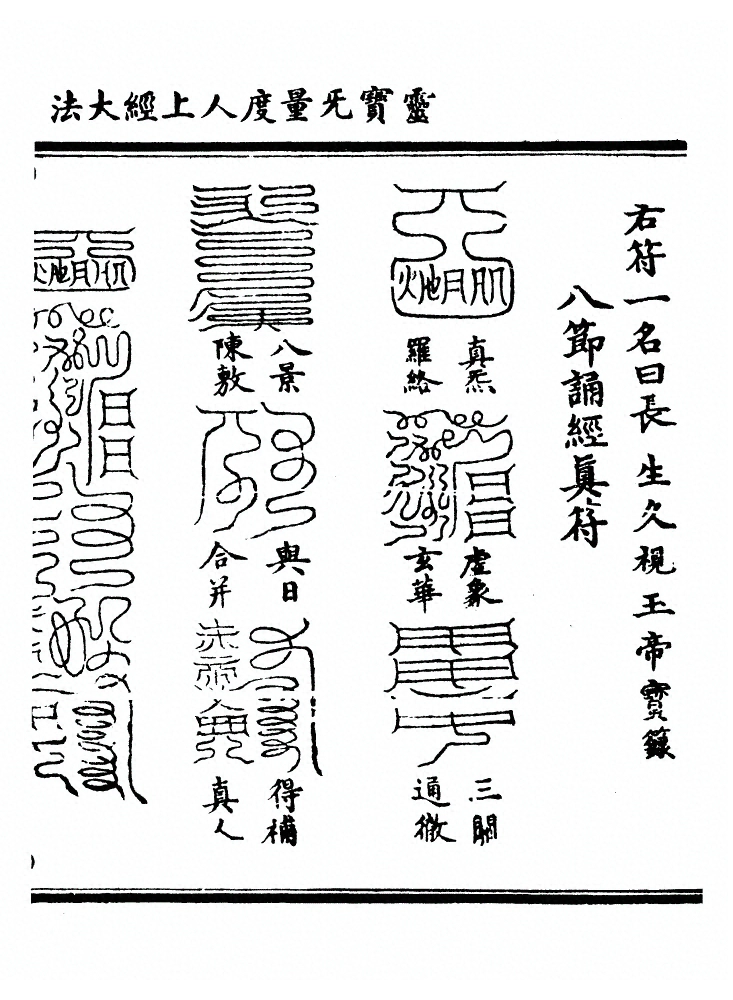 靈寶无量度人上經大法
右符一名曰長生久視王帝寶籙
八節誦經眞符
真炁
羅絡
虛象
玄華
三關
通徹
八景
陳敷
與日
合并
得補
真人